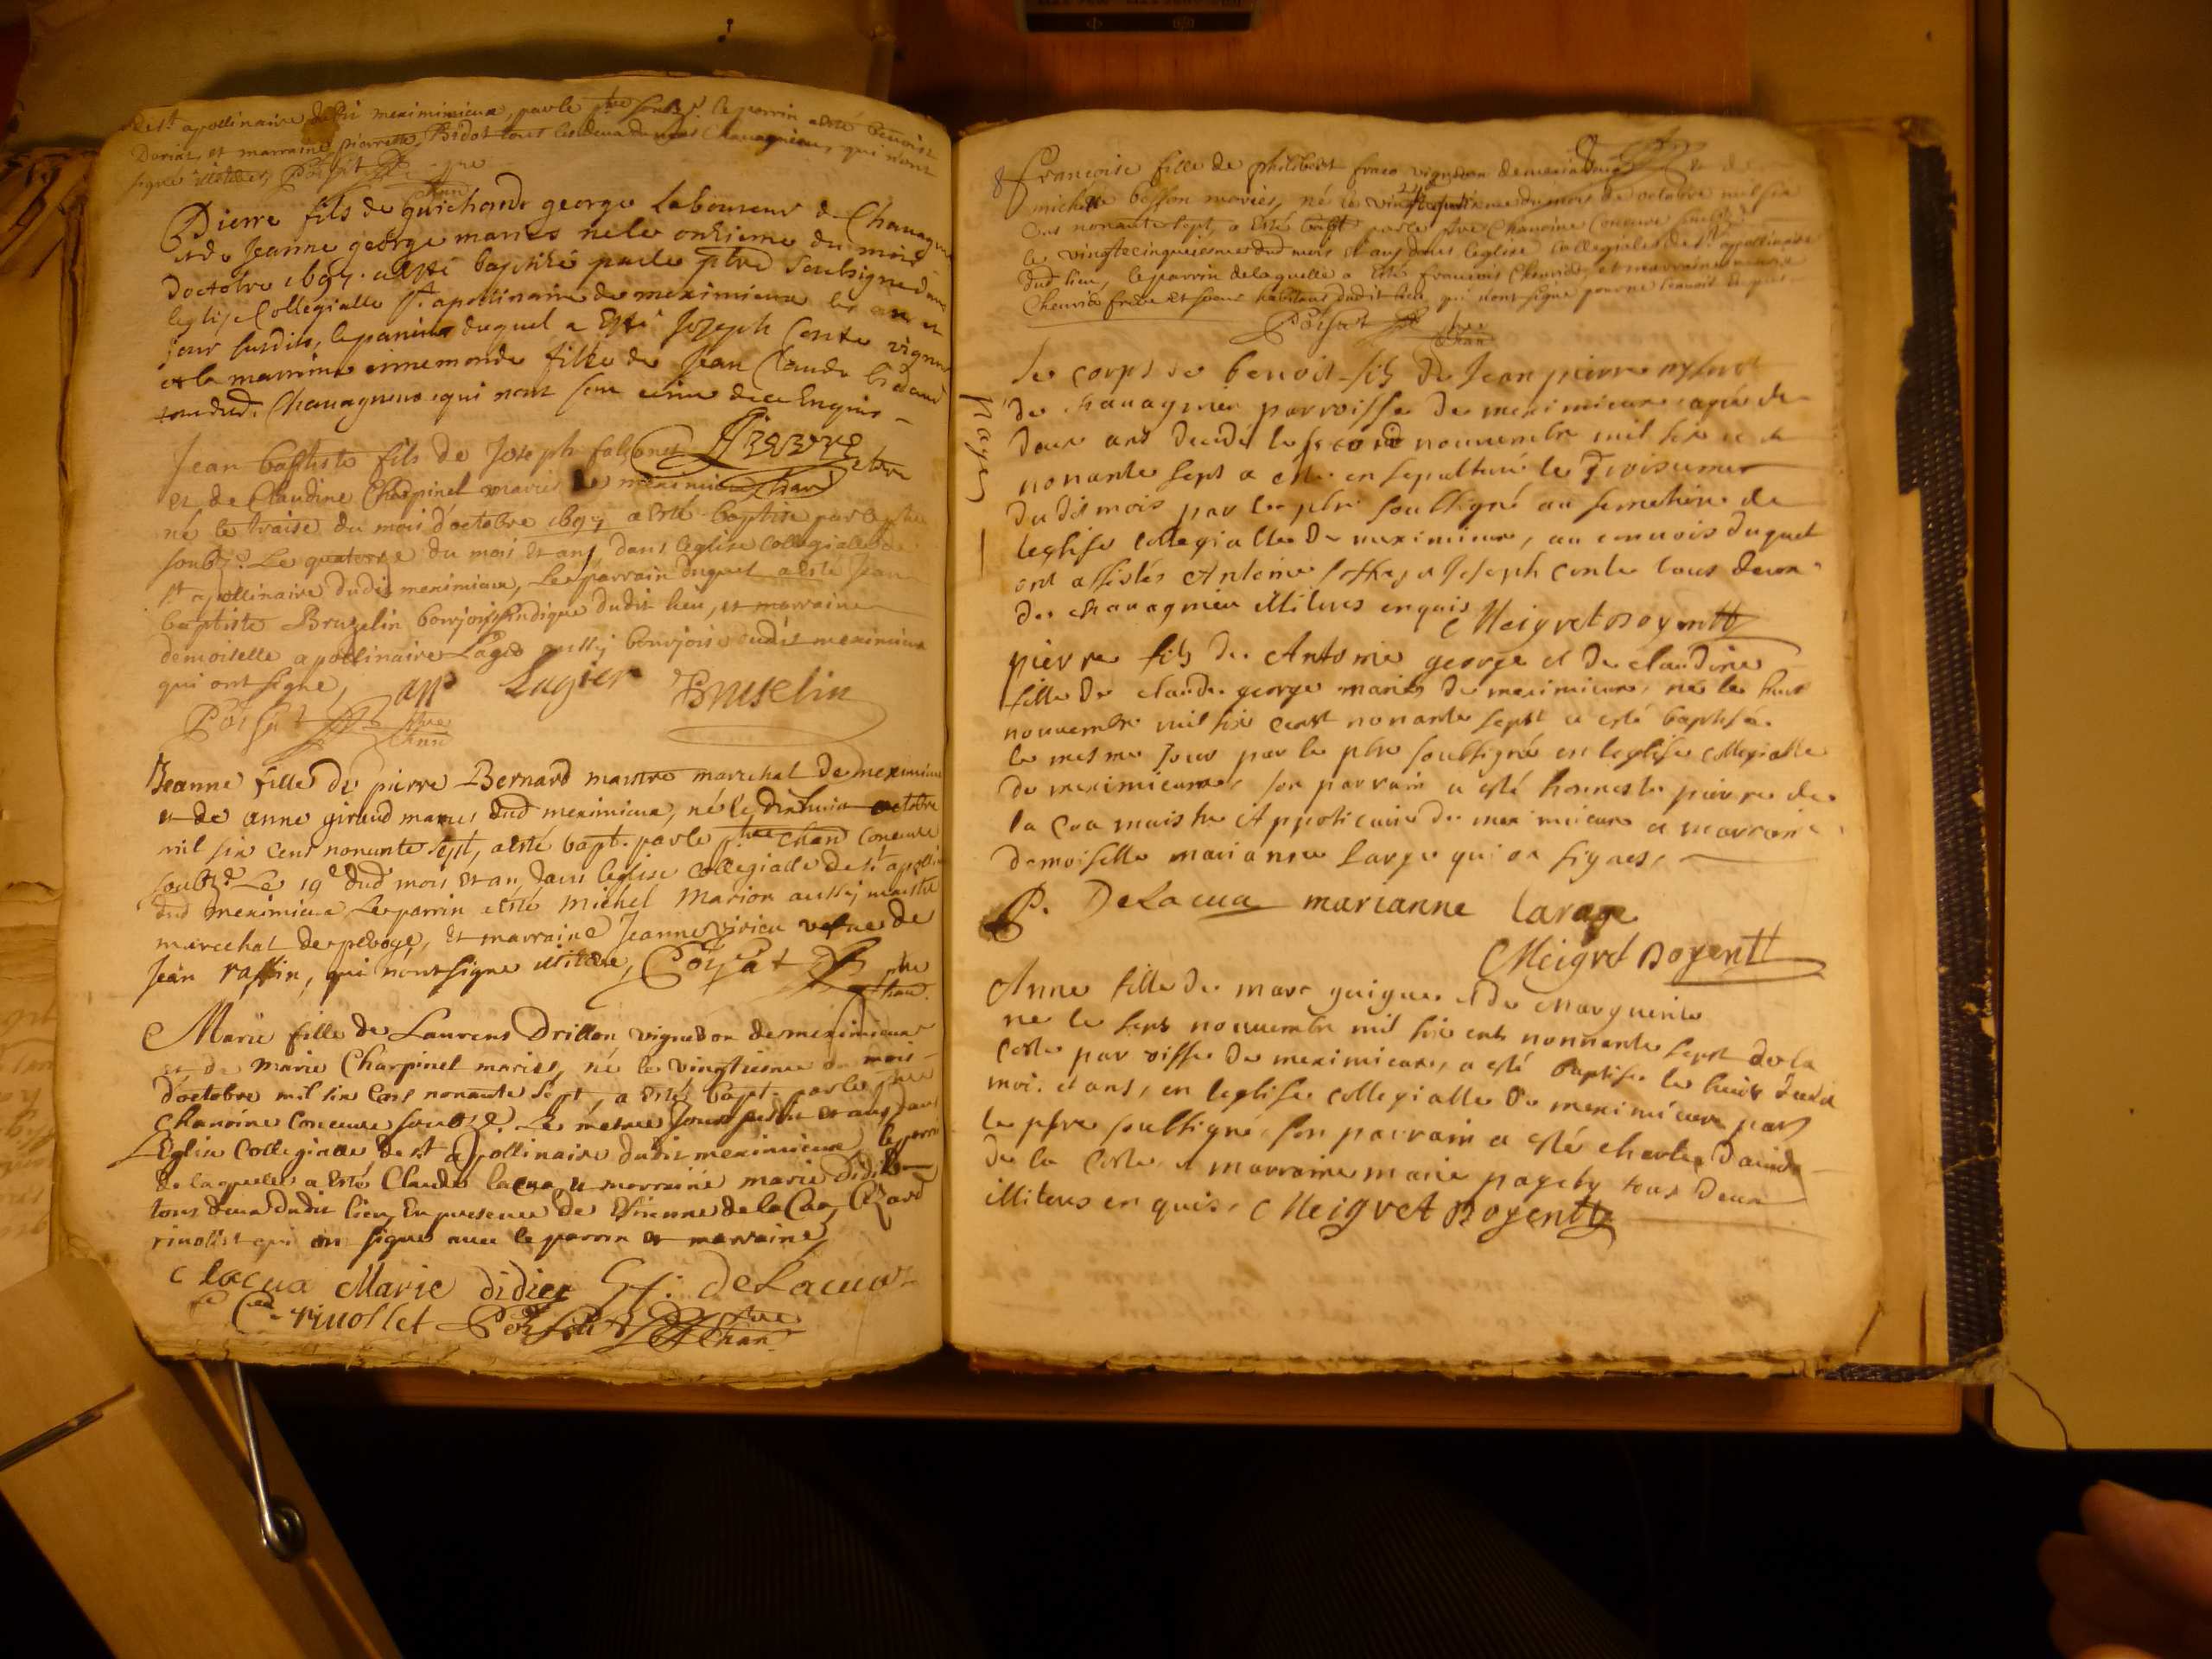 de st apollinaire dudit meximieux, par le ptre soubz.é le parrin a esté benoist
Doriat, et marraine pierrette Bidot tous les deux du mas Chauagnieu, qui n'ont
signé illiteres, Poisat ptre
Chan
Pierre fils de guichard george laboureur de Chauagneu
et de Jeanne george mariés né le onzieme du mois
doctobre 1697. a esté baptizé par le ptre soubsigné dans
leglise Collegialle st apollinaire de meximieux les an et
jour susdits, le parrin duquel a esté Joseph Conte vigneron
et la marrine ennemonde fille de Jean Claude bidaud
tous dud. Chauagneux qui n'ont sceu ecrire de ce Enquis
ptre
Chan
Jean baptiste fils de Joseph falconet
et de Claudine Charpinel mariés de meximieux
né le traise du mois d'octobre 1697 a esté baptisé par le ptre
soubz.é Le quatorse du mois et an, dans leglise Collegialle de
st apollinaire dudit meximieux, Le parrain duquel a esté Jean
baptiste Bruzelin bourjois sindique dudit lieu, et marraine
demoiselle apollinaire Lagier aussy bourjoise dudit meximieux
qui ont signé,
app Lagier Bruselin
Poisat ptre
Chan
Jeanne fille de pierre Bernard maitre marechal de meximieux
et de anne giraud mariés dud meximieux, né le dixhuit octobre
mil six cens nonante sept, a esté bapt. par le ptre Chan Coneuré
soubz.é Le 19e dud mois et an, dans leglise Collegialle de st apolli
dud meximieux Le parrin a esté michel Marion aussy maistre
marechal de peroge, et marraine Jeanne virieu vefue de
Jean raffin, qui n'ont signé illiteré, Poisat ptre
Chan.
Marie fille de Laurens Drillon vigneron de meximieux
et de marie Charpinel mariés, né le vingtiesme du mois
d'octobre mil six Cens nonante sept, a esté bapt. par le ptre
Chanoine Coneuré soubz.é. Le mesme jour susdit et an, dans
LEglise Collegialle de st apollinaire dudit meximieux, le parrin
de laquelle a esté Claude lacua et marraine marie didier
tous deux dudit lieu, En presence de Estienne de la Cua, Cezard
riuollet qui on signé auec le parrin et marraine,
C lacua Marie didier St: deLacua
C riuollet Poisat ptre
Chan
8 francoise fille de philibert frare vigneron de meximieux et de
michelle besson mariés, né le vingtquatriesme du mois de octobre mil six
Cens nonante sept, a esté bapt par le ptre Chanoine Coneuré soubz.é
le vingtecinquiesme dud mois et an, dans leglise Collegialle de st appollinaire
dud lieu, le parrin de laquelle a esté francois Cheurier et marraine
Cheurier frere et soeur habitans dudit lieu, qui n'ont signé pour ne scauoir
Poisat ptre
Chan
Le corps de benoit fils de Jean pierre
de chauagnieu parroisse de meximieux agée de
deux ans decedé le second nouuembre mil six cent
nonante sept a esté ensepulturé le Troisieme
dudit mois par le ptre soubsigné au semetiere de
leglise collegialle de meximieux, au conuois duquel
ont assistés Antoine et Joseph Conte tous deux
de chauagnieu illiteres enquis Meigret Doyen
pierre fils de Antoine george et de claudine
fille de claude george mariés de meximieux, né le huit
nouuembre mil six cent nonante sept a esté baptisé
le mesme jour par le ptre soubsigné en leglise collegialle
de meximieux, son parrain a esté honneste pierre de
la Cua maistre Appoticaire de meximieux et marraine
demoiselle marianne large qui on signés,
P. DeLacua marianne larage
Meigret Doyen
Anne fille de marc guigue et de marguerite
né le sept nouuembre mil six cent nonnante sept de la
coste parroisse de meximieux, a esté baptisée le huit dudit
moi. et ans, en leglise collegialle de meximieux par
le ptre soubsigné son parrain a esté charles
de la Coste et marraine marie pageby tous deux
illiteres enquis, Meigret Doyen